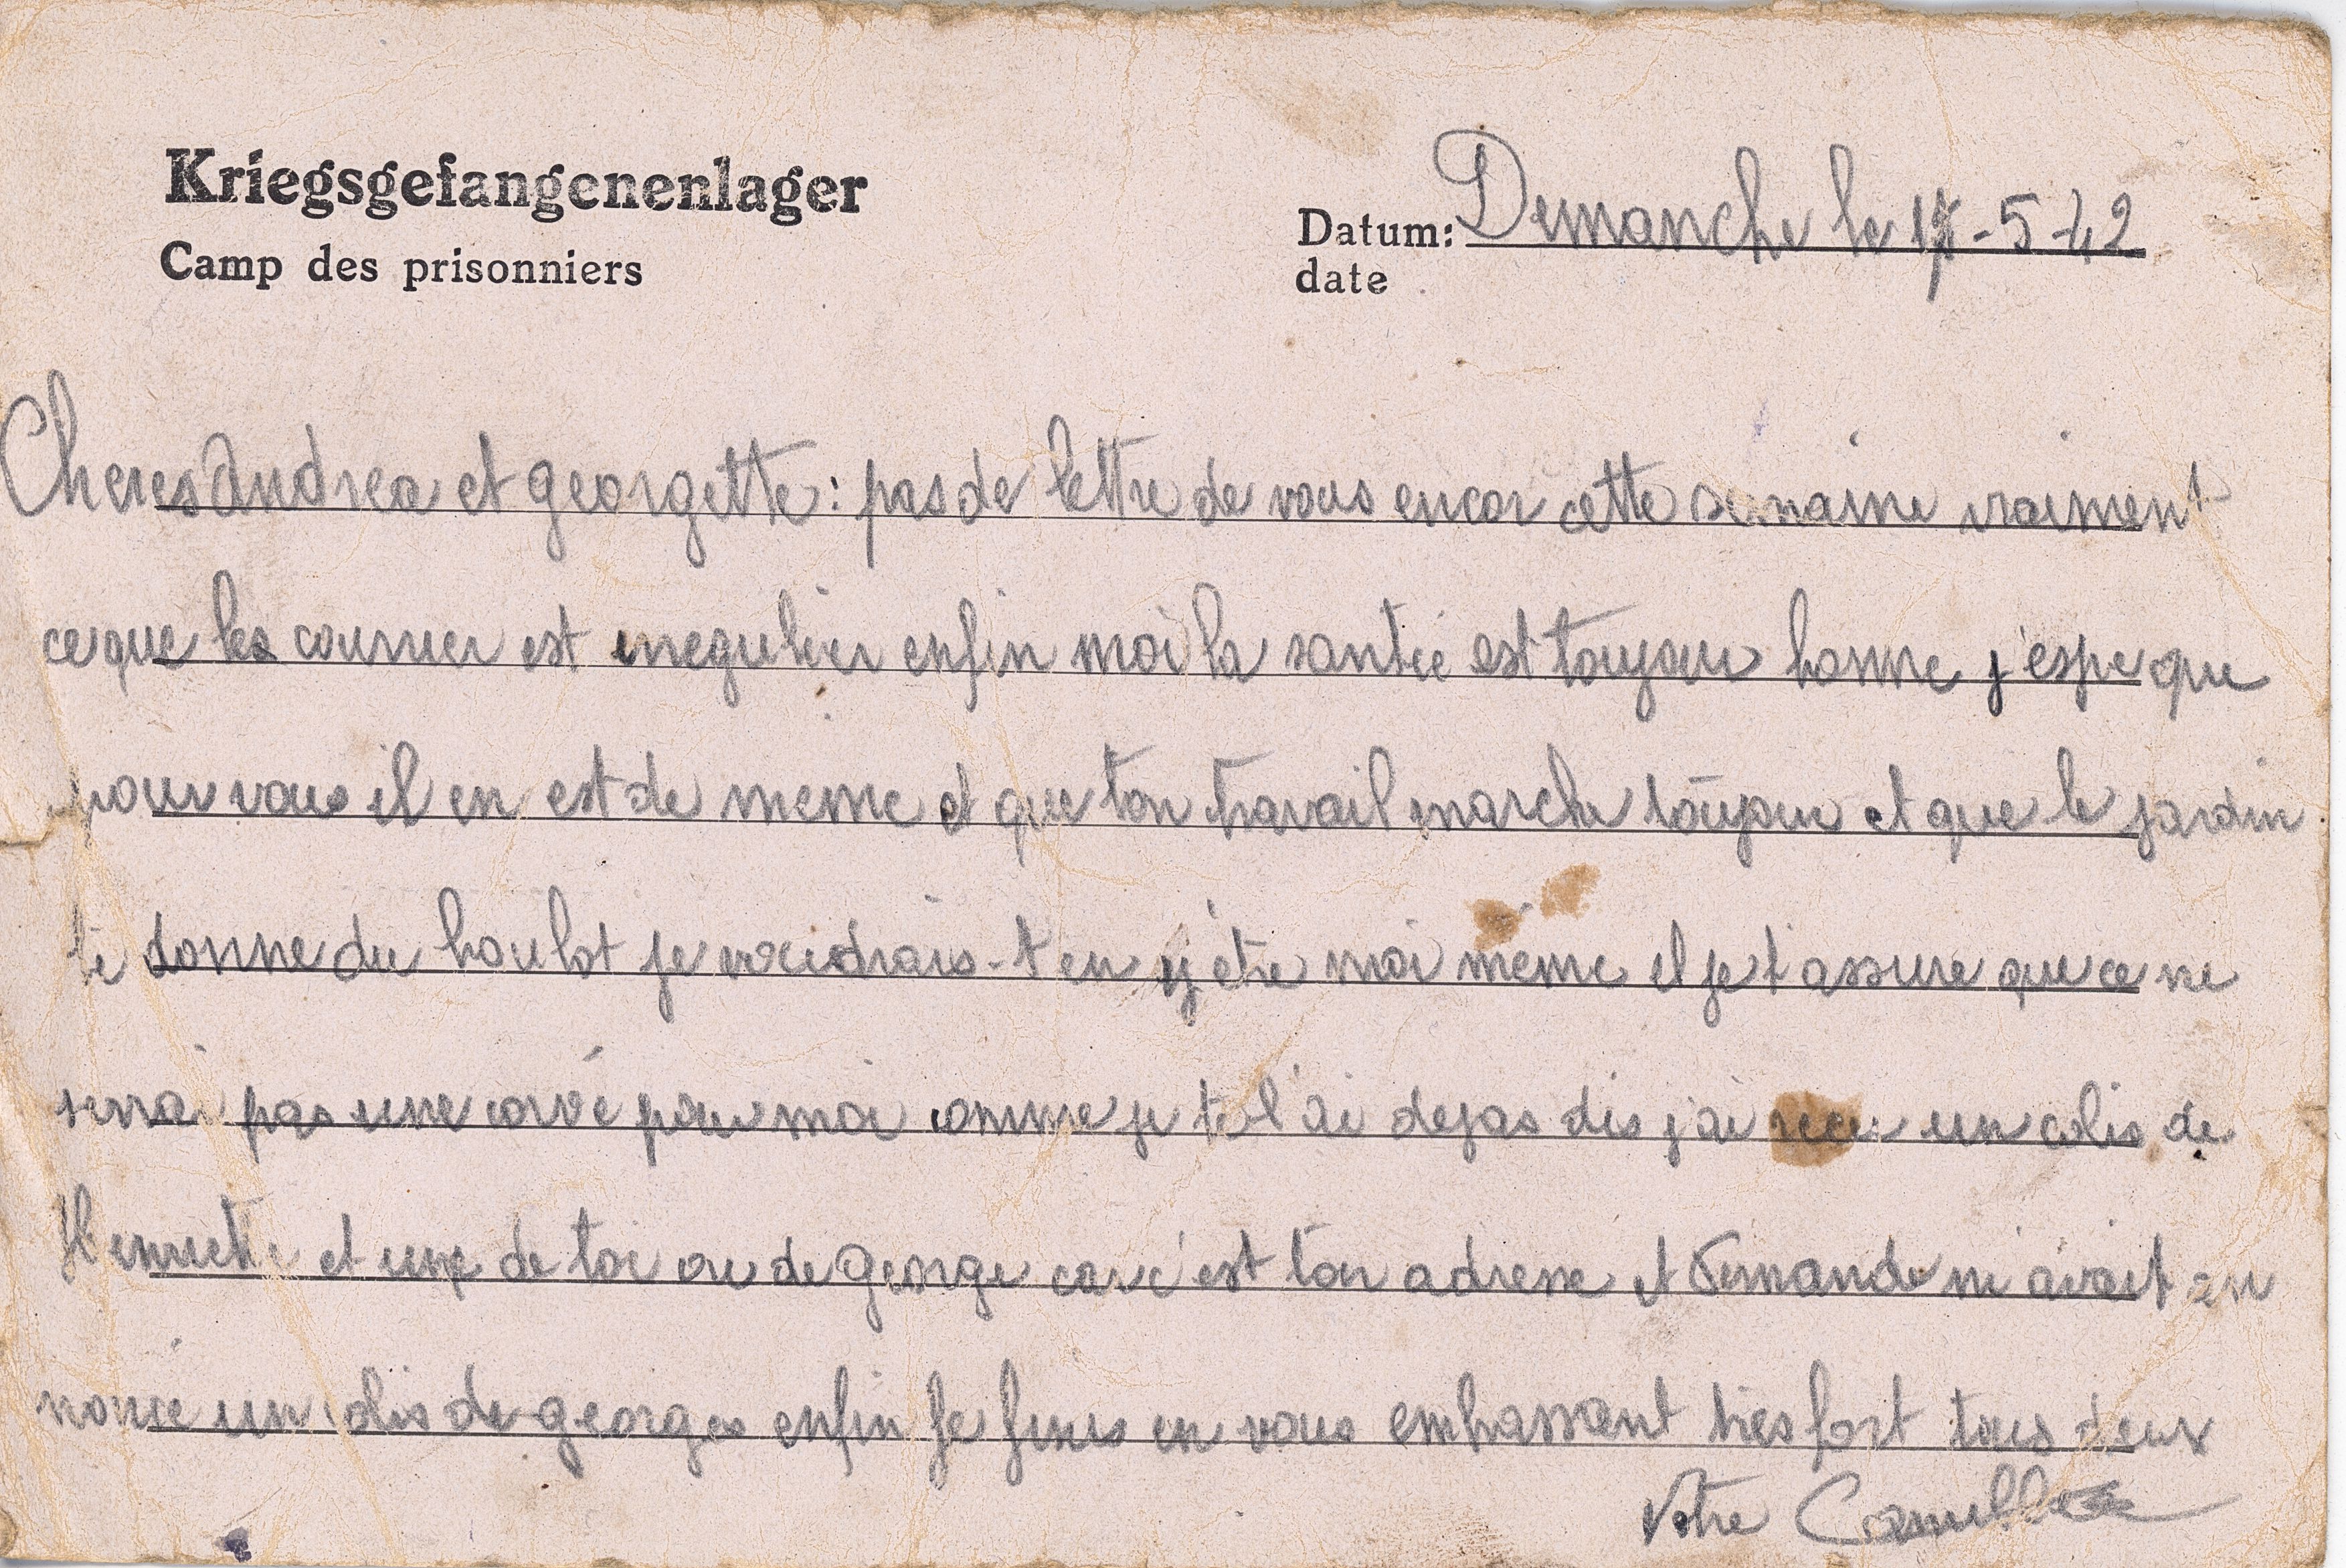 Kriegsgefangenenlager
Camp des prisonniers
Datum: Dimanche le 17-5-42
date
Cheres Andrea et georgette : pas de lettre de vous encor cette semaine vraiment
ce que les courrier est irregulier enfin moi la santée est toujour bonne j'espe que
pour vous il en est de meme et que ton travail marche toujour et que le jardin
te donne du boulot je voudrais-t en y etre moi même et je t'assure que ce ne
serrai pas une corvé pour moi comme je te l'ai dejas dis j'ai recu un colis de
Henriette et une de toi ou de George car c'est ton adresse et Fernande m'avait en
noncé un colis de georges enfin je finis en vous embrassant tres fort tous deux
Votre Camille